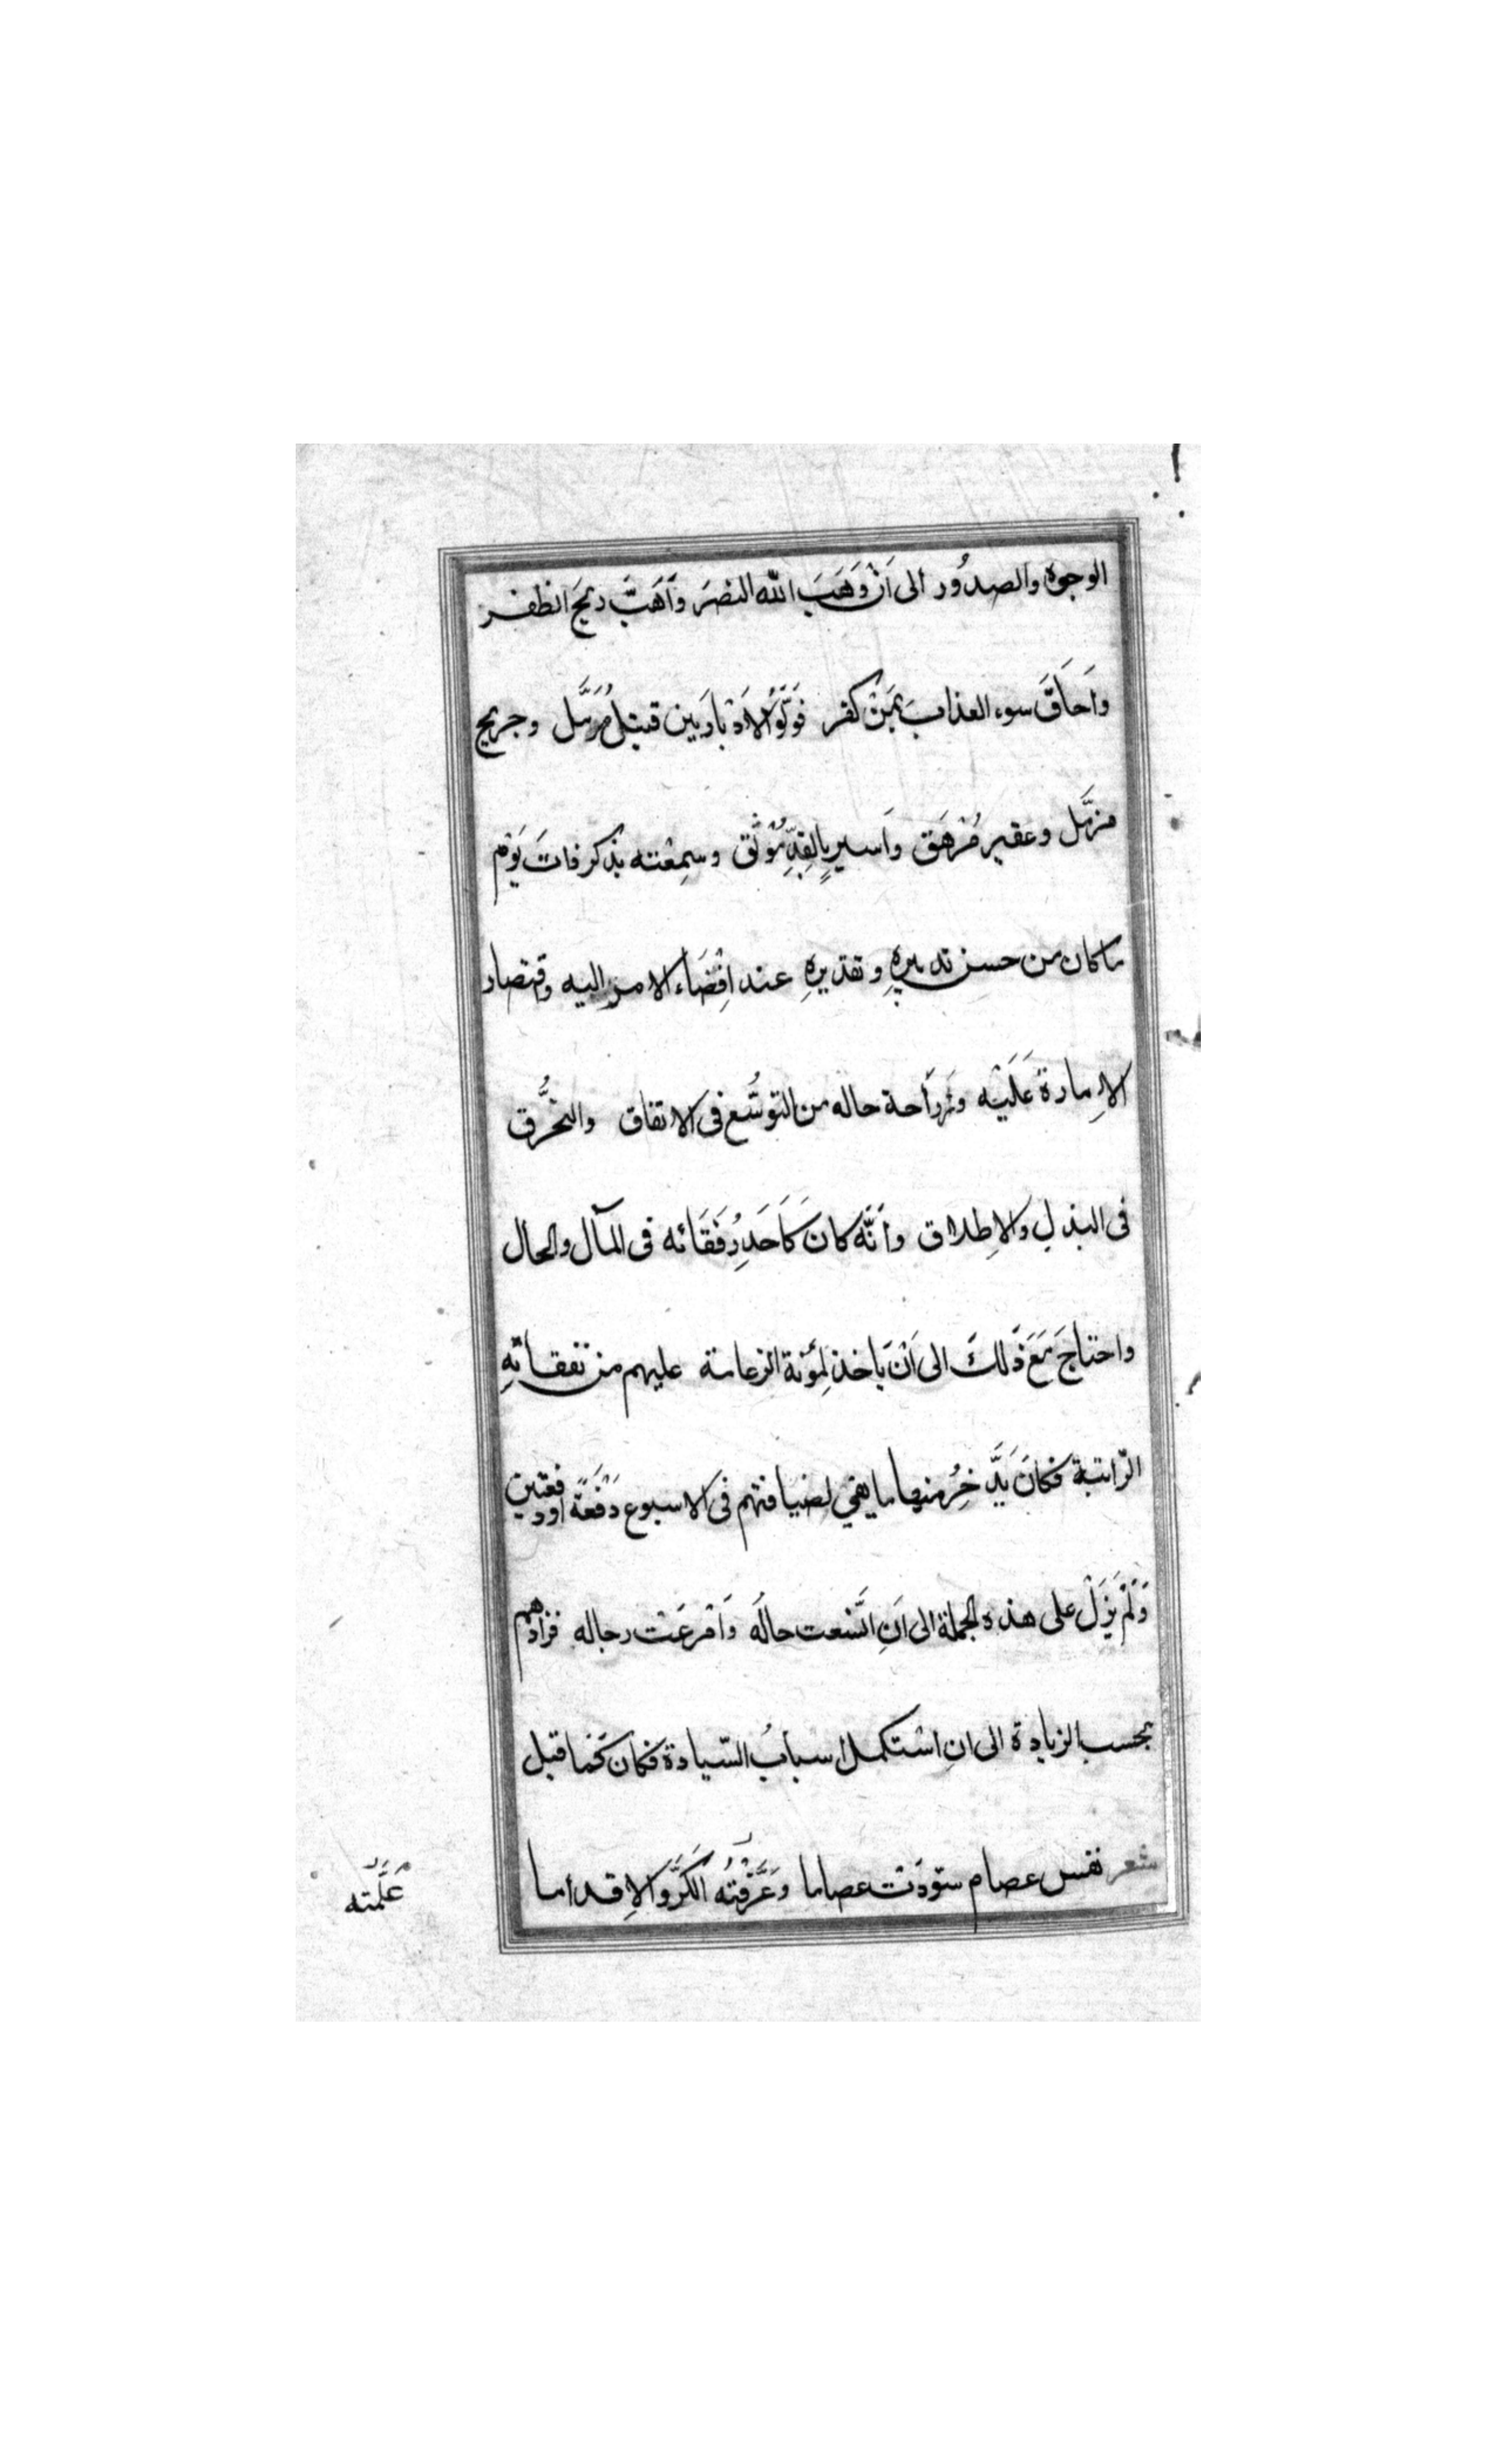 الوجوه والصدُور الى اَنْ وَهَبَ الله النصَرَ وأَهَبَّ ريحَ الظفر
واَحاَقَ سوء العذابَ بمَنْ كفر فَوَلَّوُا الاَدْبارَ بين قتيل مُرَمَّل وجريح
مزمَّل وعقير مُرْهَق واَسير بِالقِدِّ مُوْثَق وسمِعْته يذكر فاتَ يَوْم
ما كان من حسن تدبيرهِ وتقديرهِ عند اِفْضَاء الامر اليه واقتصار
الاِمارة عَلَيْه ونَزاحة حاله من التوسُّع فى الانفاق والتخرُّق
فى البذلِ والاِطلاق وأنَّه كانَ كَاَحَدِ رُفَقَائه فى المآل والحال
واحتاجَ مَعَ ذَلكَ الى اَنْ يَاخذ لِمؤنة الزعامة عليهم من نفقاتهِ
الرّاتبة فكانَ يَدَّخِرُ منها ما يفي لضيافتهم فى الاسبوع دَفْعَةً اودفعتين
وَلَمْ يَزَلْ على هذه الجملة الى اَنِ اتَّسعت حالُه وَاَمْرعَتْ رحاله فزادهم
بحسب الزيادة الى انِ اسْتكمل أسبابُ السّيادة فكان كَما قيل
شعر نفس عصام سوّدَتْ عصاما وَعَرَّفَتْهُ الكَرَّ وَالاِقداما
عَلَّمَته